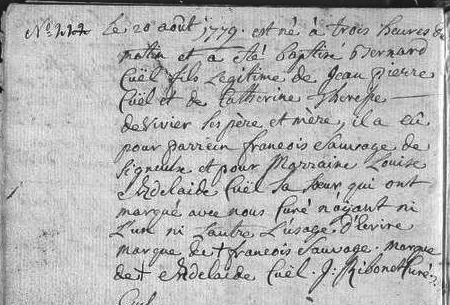 No 222 Le 20 août 1779. est né à trois heures de
matin et a eté baptisé Bernard
Cuël fils Legitime de Jean pierre
Cuël et de Catherine therese
devivier ses père et mère, il a eû
pour parrein francois Sauvage de
Signeulx et pour Marraine Louise
Adelaide Cuël Sa Sœur qui ont
marqué avec nous Curé n'ayant ni
L'un ni L'autre L'usage d'Ecrire
marque de + francois Sauvage. marque
de + Adelaide Cuël. J: Ribonet Curé
Cuel